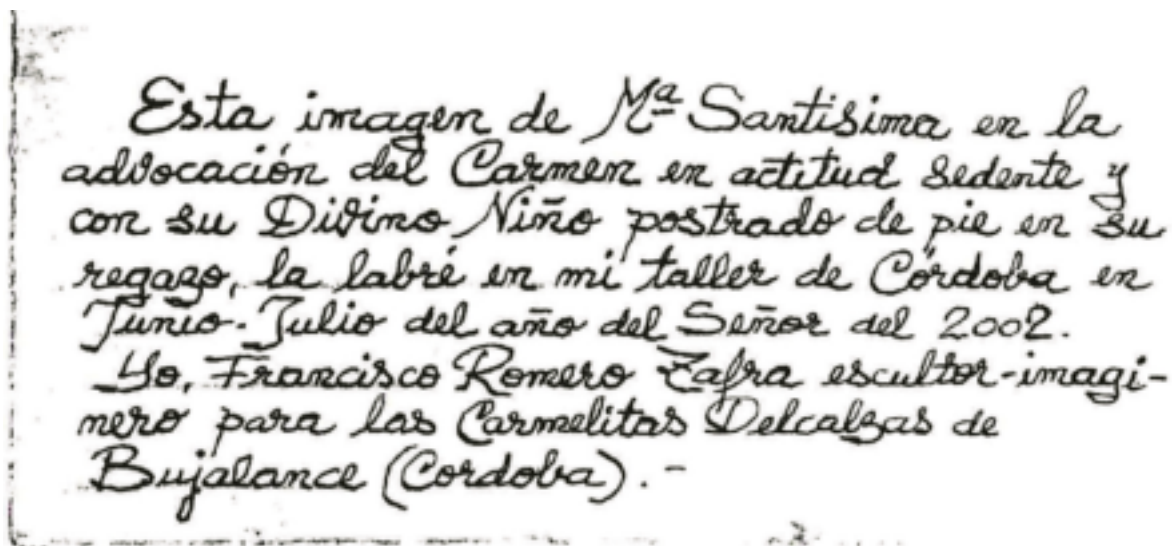 Esta imagen de Mª Santisima en la
advocación del Carmen en actitud sedente y
con su Divino Niño postrado de pie en su
regazo, la labré en mi taller de Córdoba en
Junio-Julio del año del Señor del 2002.
Yo, Francisco Romero Zafra escultor-imagi-
nero para las Carmelitas Delcalzas de
Bujalance (Cordoba).-